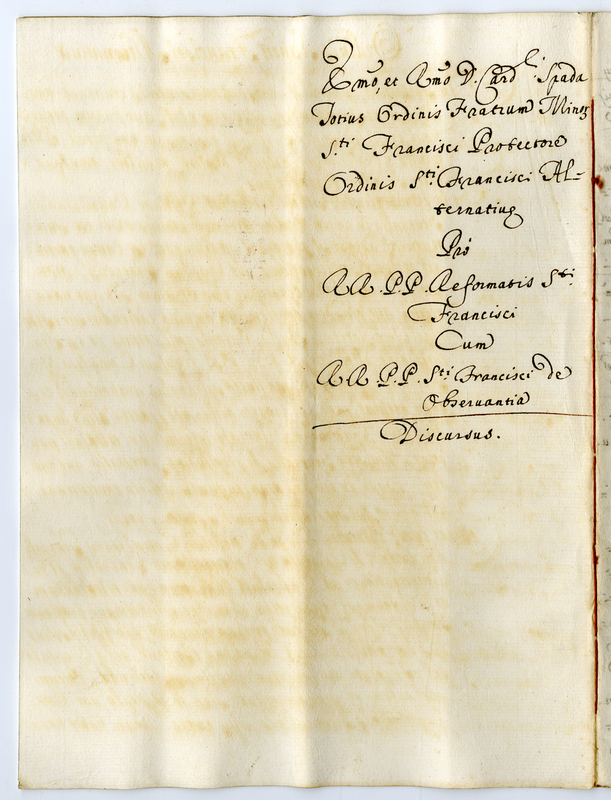 Emo, et Rmo D. Card.li Spada
Totius Ordinis Fratrum Minor
S.ti Francisci Protectore
Ordinis S.ti Francisci Al=
ternatiuꝫ
Pro
RR. P.P. Reformatis S.ti
Francisci
Cum
RR P.P. S.ti Francisci de
Obseruantia
Discursus.